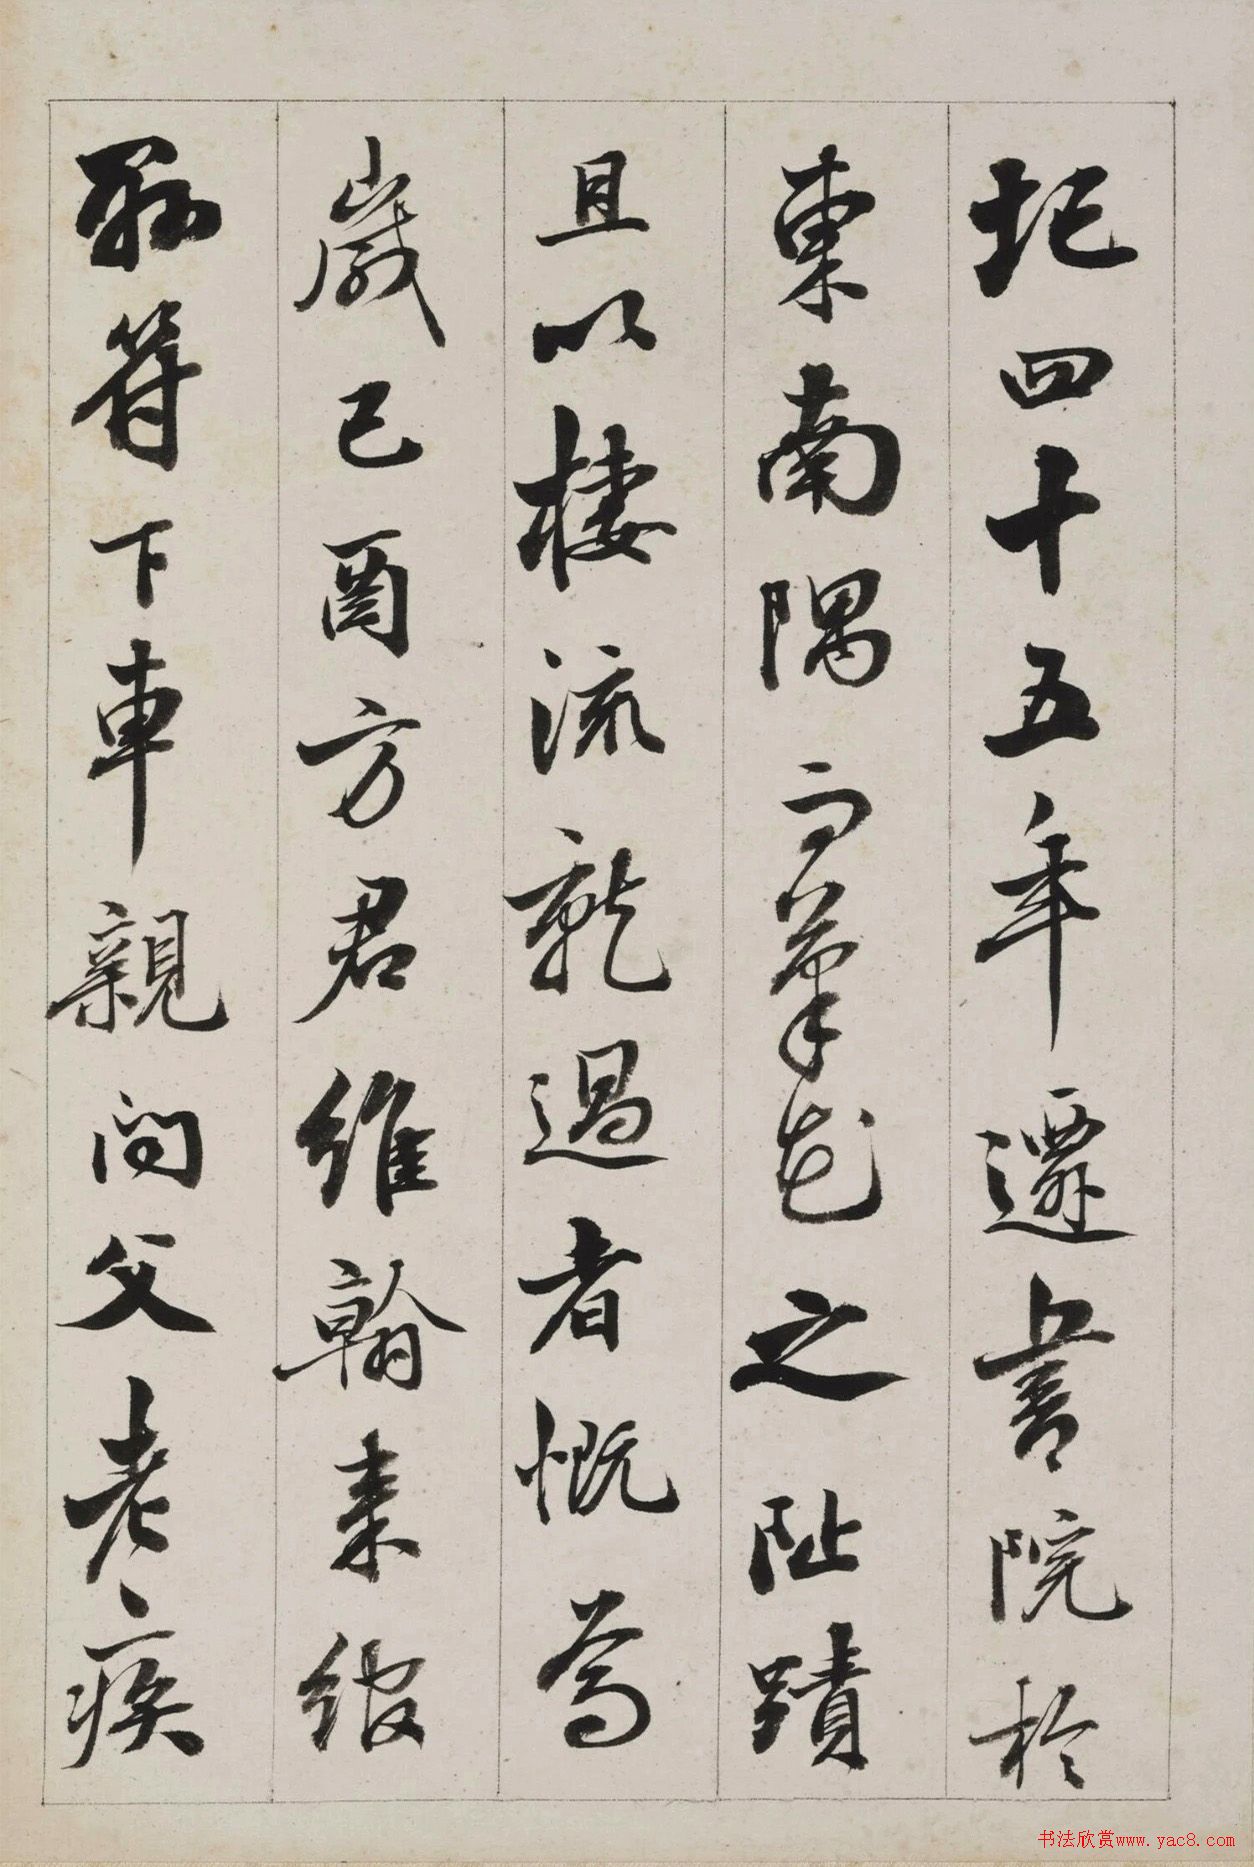 圮四十五年遷書院於
東南隅而葺花之阯蹟
且以棲流乾過者慨焉
歲己酉方君維翰来綰
縣符下車親問父老疾
书法欣赏www.yac8.com